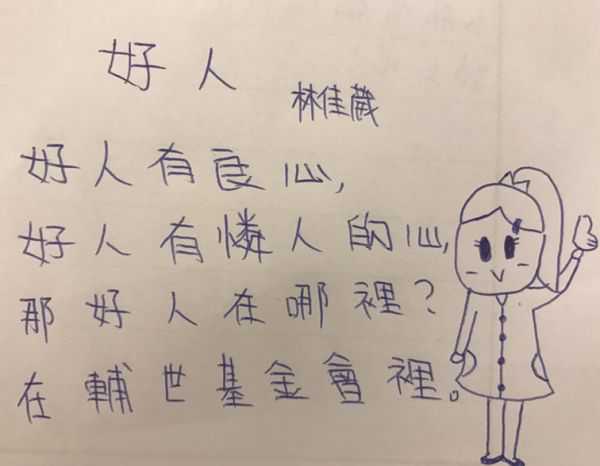 好人
林佳葳
好人有良心,
好人有憐人的心,
那好人在哪裡?
在輔世基金會裡。